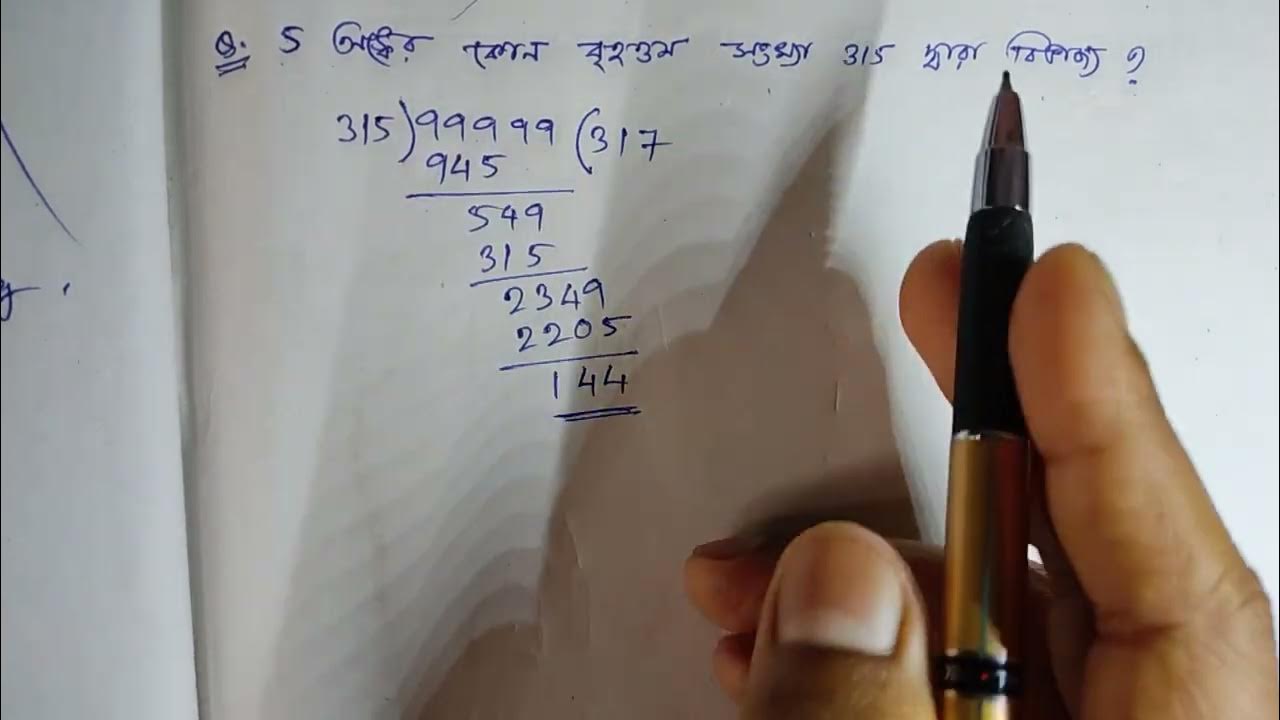 Q. 5 অঙ্কের কোন বৃহত্তম সংখ্যা 315 দ্বারা বিভাজ্য ?
315)99999(317
945
549
315
2349
2205
144